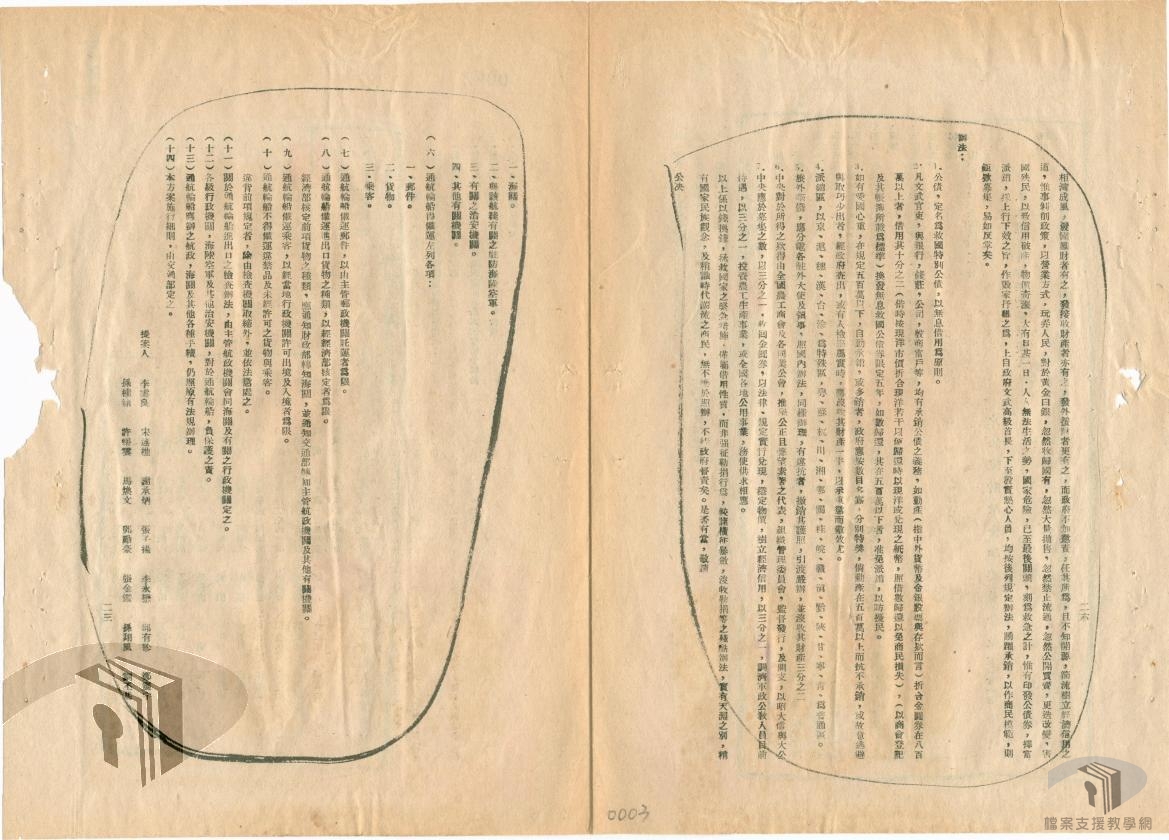 相濟成風,發國難財者有之,發接收財產者亦有之,發外匯財者更有之,而政府不加懲責,任其所為,且不知開源,節流樹立經濟信用之
道,惟事斜削政策,以營業方式,玩弄人民,對於黃金白銀,忽然收歸國有,忽然大量拋售,忽然禁止流通,忽然公開買賣,更造改變,害
國殃民,以致信用破產,物價奔漲,大有日甚一日,人人無法生活之勢,國家危險,已至最後關頭,刻為救急之計,惟有印發公債券,擇富
派銷,採上行下效之旨,作毀家抒難之為,上自政府文武高級首長,下至殷實熱心人員,均按後列規定辦法,踴躍承銷,以作商民模範,則
鉅數募集,易如反掌矣。
辦法:
1.公債券定名為救國特別公債,以無息借用為原則。
2.凡文武官吏,與銀行,錢莊,公司,敎商富戶等,均有承銷公債之義務,如動產(指中外貨幣及金銀股票與存款而言)折合金圓券在八百
萬以上者,借用其十分之二(借時按現洋市價折合現洋若干以便歸還時以現洋或兌現之紙幣,照借數歸還以免商民損失),(以商會登記
及其帳簿所載為標準)換發無息救國公債券限定五年,如數歸還,其在五百萬以下者,准免派銷,以防擾民。
3.如有愛國心重,在規定五百萬以下,自動承銷,或多銷者,政府應按數目多寡,分別特獎,倘動產在五百萬以上而抗不承銷,或故意逃避
與取巧少出者,經政府查出,或有人檢舉屬實時,應沒收其財產一半,以示重懲而儆效尤。
4.派銷區,以京、滬、穗、漢、台、徐、為特殊區,粵、蘇、杭、川、湘、鄂、閩、桂、皖、贛、滇、黔、陝、甘、寧、青、為普通區。
5.旅外華僑,應分電各駐外大使及領事,照國內辦法,同樣辦理,有違抗者,撤銷其護照,引渡嚴辦,並沒收其財產三分之二
6.中央對於所得之款得由全國農工商會及各同業公會,推舉公正且聲望素著之代表,組織管理委員會,監督發行,及開支,以昭大信與大公
7.中央應於募集之數,以三分之一,收回金圓券,以法律,規定實行兌現,穩定物價,樹立經濟信用,以三分之一,調濟軍政公敎人員目前
待遇,以三分之一,投資農工生產事業,或全國各地公用事業,務使供求相應。
以上係以錢換錢,拯救國家之緊急措施,備屬借用性質,而非強征勒捐行為,較諸橫征暴斂,沒收勒捐等之極點辦法,實有天淵之別,稍
有國家民族觀念,及稍識時代潮流之商民,無不樂於照辦,不待政府督責矣。是否有當,敬請
公決
二六
一、海關。
二、與該航線有關之駐防海陸空軍。
三、有關之治安機關。
四、其他有關機關。
(六)通航輪船得儎運左列各項:
一、郵件。
二、貨物。
三、乘客。
(七)通航輪船儎運郵件,以由主管郵政機關託運者為限。
(八)通航輪船儎運進出口貨物之種類,以經經濟部核定者為限。
經濟部核定前項貨物之種類,應通知財政部轉知海關,並通知交通部轉知主管航政機關及其他有關機關。
(九)通航輪船儎運乘客,以經當地行政機關許可出境及入境者為限。
(十)通航輪船不得儎運違禁品及未經許可之貨物與乘客。
違背前項規定者,除由檢查機關取締外,並依法懲處之。
(十一)關於通航輪船進出口之檢查辦法,由主管航政機關會同海關及有關之行政機關定之。
(十二)各級行政機關,海陸空軍及其他治安機關,對於通航輪船,負保護之責。
(十三)通航輪船應辦之航政,海關及其他各種手續,仍應原有法規辦理。
(十四)本方案施行細則,由交通部定之。
提案人 李雲良 宋述樵 謝承炳 張子揚 李永懋 邱有珍
孫桂籍 許紹棻 馬煥文 鄧勵豪 張金鑑 孫翔風 劉不同
二三
0003
檔案支援教學網